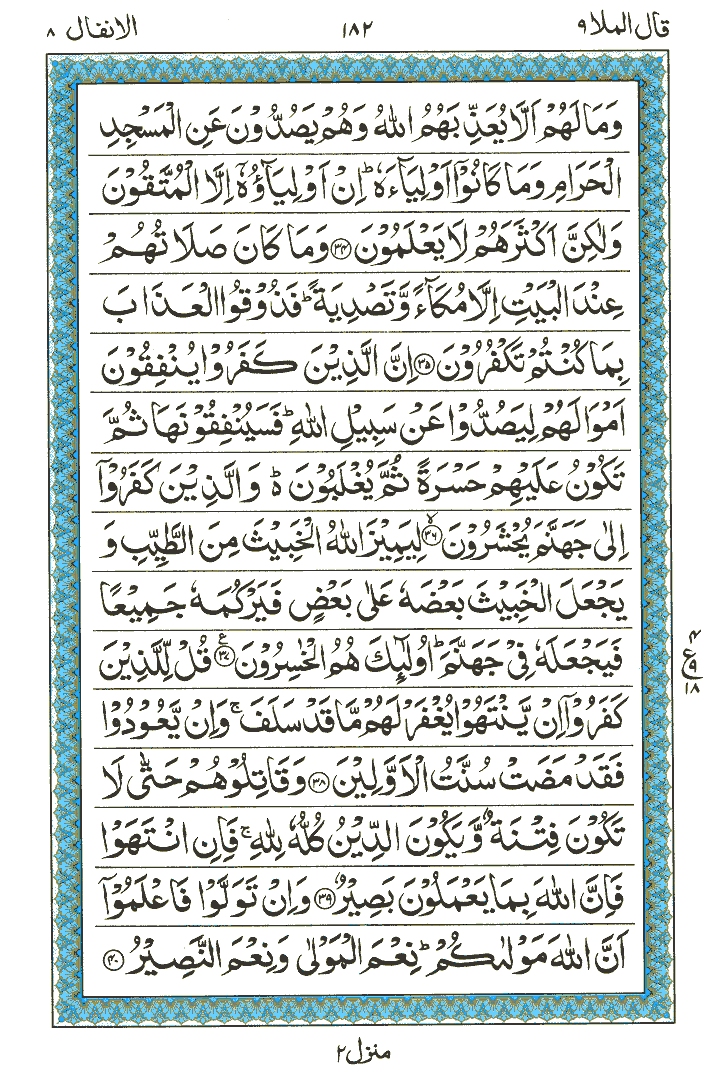 قال الملا ٩
١٨٢
الانفال ٨
وَمَا لَهُمْ اَلَّا يُعَذِّبَهُمُ اللّٰهُ وَهُمْ يَصُدُّوْنَ عَنِ الْمَسْجِدِ
الْحَرَامِ وَمَا كَانُوْۤا اَوْلِيَآءَهٗ ؕ اِنْ اَوْلِيَآؤُهٗۤ اِلَّا الْمُتَّقُوْنَ
وَلٰكِنَّ اَكْثَرَهُمْ لَا يَعْلَمُوْنَ ﴿٣٤﴾ وَمَا كَانَ صَلَاتُهُمْ
عِنْدَ الْبَيْتِ اِلَّا مُكَآءً وَّتَصْدِيَةً ؕ فَذُوْقُوا الْعَذَابَ
بِمَا كُنْتُمْ تَكْفُرُوْنَ ﴿٣٥﴾ اِنَّ الَّذِيْنَ كَفَرُوْا يُنْفِقُوْنَ
اَمْوَالَهُمْ لِيَصُدُّوْا عَنْ سَبِيْلِ اللّٰهِ ؕ فَسَيُنْفِقُوْنَهَا ثُمَّ
تَكُوْنُ عَلَيْهِمْ حَسْرَةً ثُمَّ يُغْلَبُوْنَ ۬ؕ وَالَّذِيْنَ كَفَرُوْۤا
اِلٰى جَهَنَّمَ يُحْشَرُوْنَ ﴿٣٦﴾ۙ لِيَمِيْزَ اللّٰهُ الْخَبِيْثَ مِنَ الطَّيِّبِ وَ
يَجْعَلَ الْخَبِيْثَ بَعْضَهٗ عَلٰى بَعْضٍ فَيَرْكُمَهٗ جَمِيْعًا
فَيَجْعَلَهٗ فِيْ جَهَنَّمَ ؕ اُولٰٓئِكَ هُمُ الْخٰسِرُوْنَ ﴿٣٧﴾ ع قُلْ لِّلَّذِيْنَ
كَفَرُوْۤا اِنْ يَّنْتَهُوْا يُغْفَرْ لَهُمْ مَّا قَدْ سَلَفَ ۚ وَاِنْ يَّعُوْدُوْا
فَقَدْ مَضَتْ سُنَّتُ الْاَوَّلِيْنَ ﴿٣٨﴾ وَقَاتِلُوْهُمْ حَتّٰى لَا
تَكُوْنَ فِتْنَةٌ وَّيَكُوْنَ الدِّيْنُ كُلُّهٗ لِلّٰهِ ۚ فَاِنِ انْتَهَوْا
فَاِنَّ اللّٰهَ بِمَا يَعْمَلُوْنَ بَصِيْرٌ ﴿٣٩﴾ وَاِنْ تَوَلَّوْا فَاعْلَمُوْۤا
اَنَّ اللّٰهَ مَوْلٰىكُمْ ؕ نِعْمَ الْمَوْلٰى وَنِعْمَ النَّصِيْرُ ﴿٤٠﴾
٤
ع ٩
١٨
منزل ٢